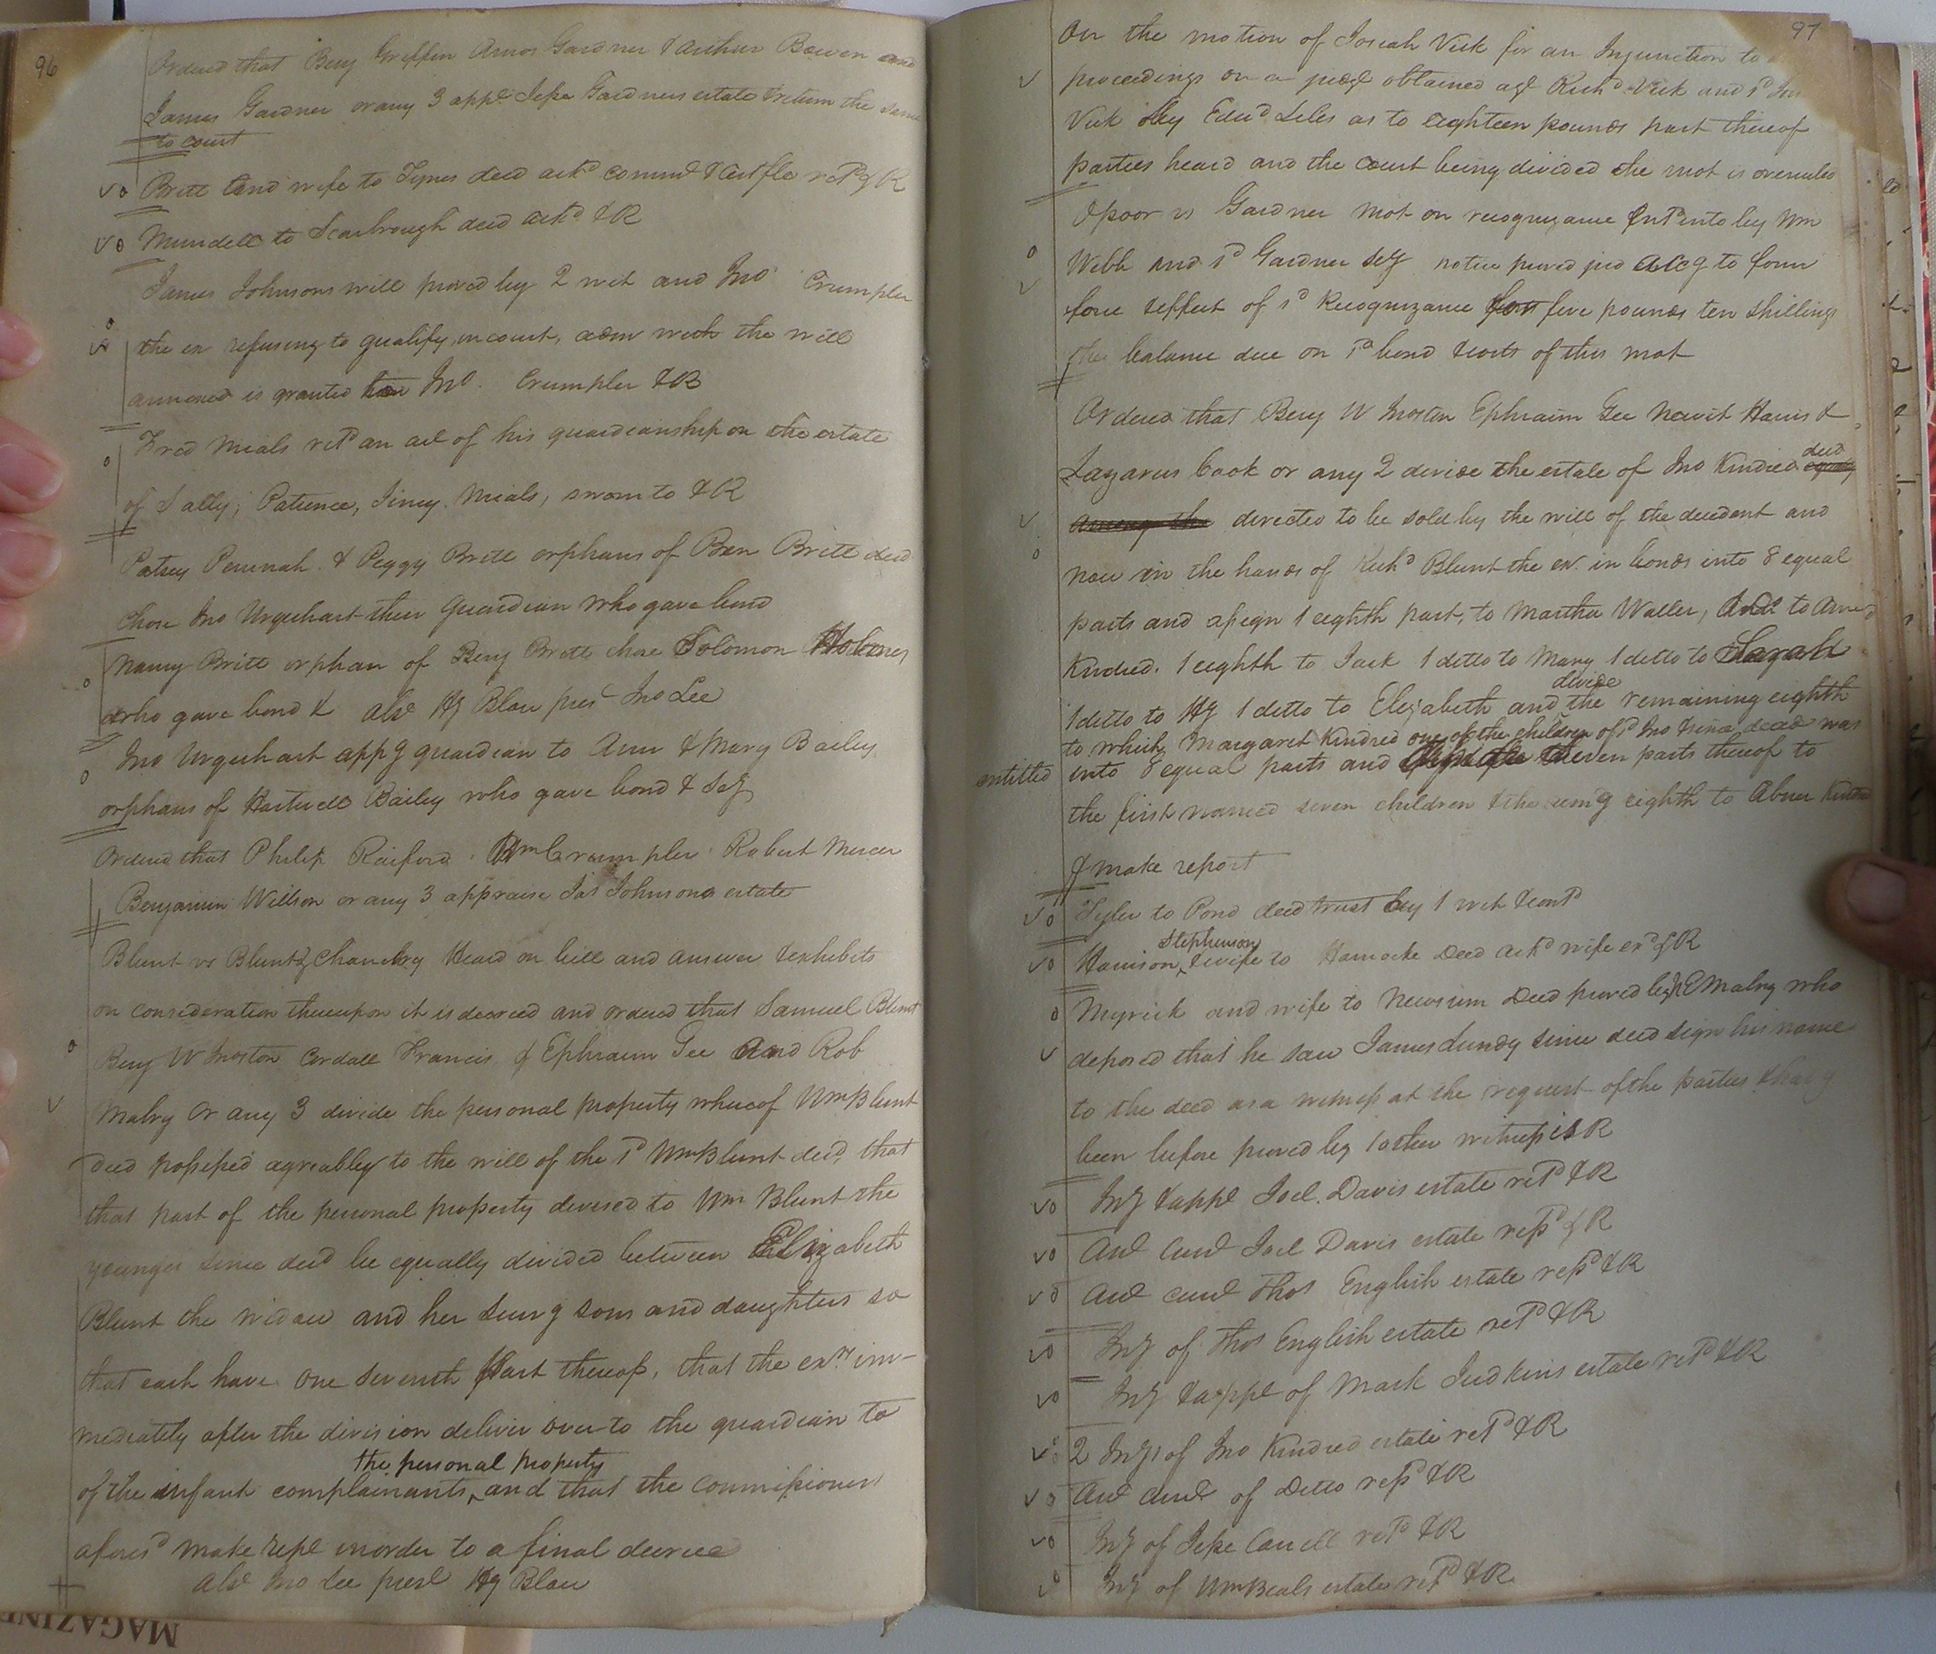 96
Ordered that Benj Griffin Amos Gardner & Arthur Bowen and
James Gardner or any 3 appe Jesse Gardners estate & return the same
to court
Britt and wife to Tynes deed ackd commd & Certfte retd & R
Mundell to Scarbrough deed ackd & R
James Johnsons will proved by 2 wit and Jno Crumpler
the ex refusing to qualify in court, adm with the will
annexed is granted Jno. Crumpler & B
Fred Meals retd an act of his guardianship on the estate
of Sally, Patience, Jincy Meals, sworn to & R
Patsey Peninah & Peggy Britt orphans of Ben Britt decd
chose Jno Urquhart their guardian who gave bond
Nancy Britt orphan of Benj Britt chose Solomon Holmes
who gave bond & abs Hy Blow prest Jno Lee
Jno Urquhart appg guardian to Ann & Mary Bailey
orphans of Hartwell Bailey who gave bond & Sey
Ordered that Philip Raiford Wm Crumpler Robert Mercer
Benjamin Willson or any 3 appraise Jas Johnsons estate
Blunt vs Blunt Chancery Heard on bill and answer & exhibits
on consideration thereupon it is decreed and ordered that Samuel Blunt
Benj W Jnoston Cordall Francis & Ephraim Gee and Rob
Malry or any 3 divide the personal property whereof Wm Blunt
decd possessed agreabley to the will of the sd Wm Blunt decd, that
that part of the personal property devised to Wm Blunt the
younger since decd be equally divided between Elizabeth
Blunt the widow and her survg sons and daughters so
that each have one seventh part thereof, that the exrs im-
mediately after the division deliver over to the guardian to
the personal property
of the infant complainants, and that the commissioners
aforesd make rept in order to a final decree
abst Jno Lee prest Hy Blow
97
On the motion of Josiah Vick for an Injunction to
proceedings on a judgt obtained agt Richd Vick and sd
Vick by Edwd Liles as to eighteen pounds part thereof
parties heard and the court being divided the mot is overruled
Spoor vs Gardner mot on recognizance entd into by Wm
Webb and sd Gardner Sey notice proved jud accg to form
force & effect of sd Recognizance for five pounds ten shillings
the balance due on sd bond & costs of this mot
Ordered that Benj W Jnoston Ephraim Gee Newit Harris &
Lazarus Cook or any 2 divide the estate of Jno Kindred decd
among the directed to be sold by the will of the decedent and
now in the hands of Richd Blunt the ex. in bonds into 8 equal
parts and assign 1 eighth part, to Martha Waller, to
Kindred. 1 eighth to Jack 1 ditto to Mary 1 ditto to Sarah
1 ditto to Hy 1 ditto to Elizabeth and divide the remaining eighth
to which Margaret Kindred one of the children of sd Jno since dead was
entitled into 8 equal parts and seven parts thereof to
the first named seven children & the remg eighth to Abner Kindred
& make report
Tyler to Pond deed trust by 1 wit & contd
Harrison Stephenson & wife to Deed ackd wife exd & R
Myrick and wife to Newsum Deed proved by Malry who
deposed that he saw James Lundy since decd sign his name
to the deed as a witness at the request of the parties & havg
been before proved by 1 other witness is R
Invy & appt Joel Davis estate retd & R
Act curt Joel Davis estate retd & R
Act curt Thos English estate retd & R
Invy of Thos English estate retd & R
Invy & appt of Mark Judkins estate retd & R
2 Invys of Jno Kindred estate retd & R
Act curt of Ditto retd & R
Invy of Jesse Carrell retd & R
Invy of Wm Beals estate retd & R
MAGAZINE